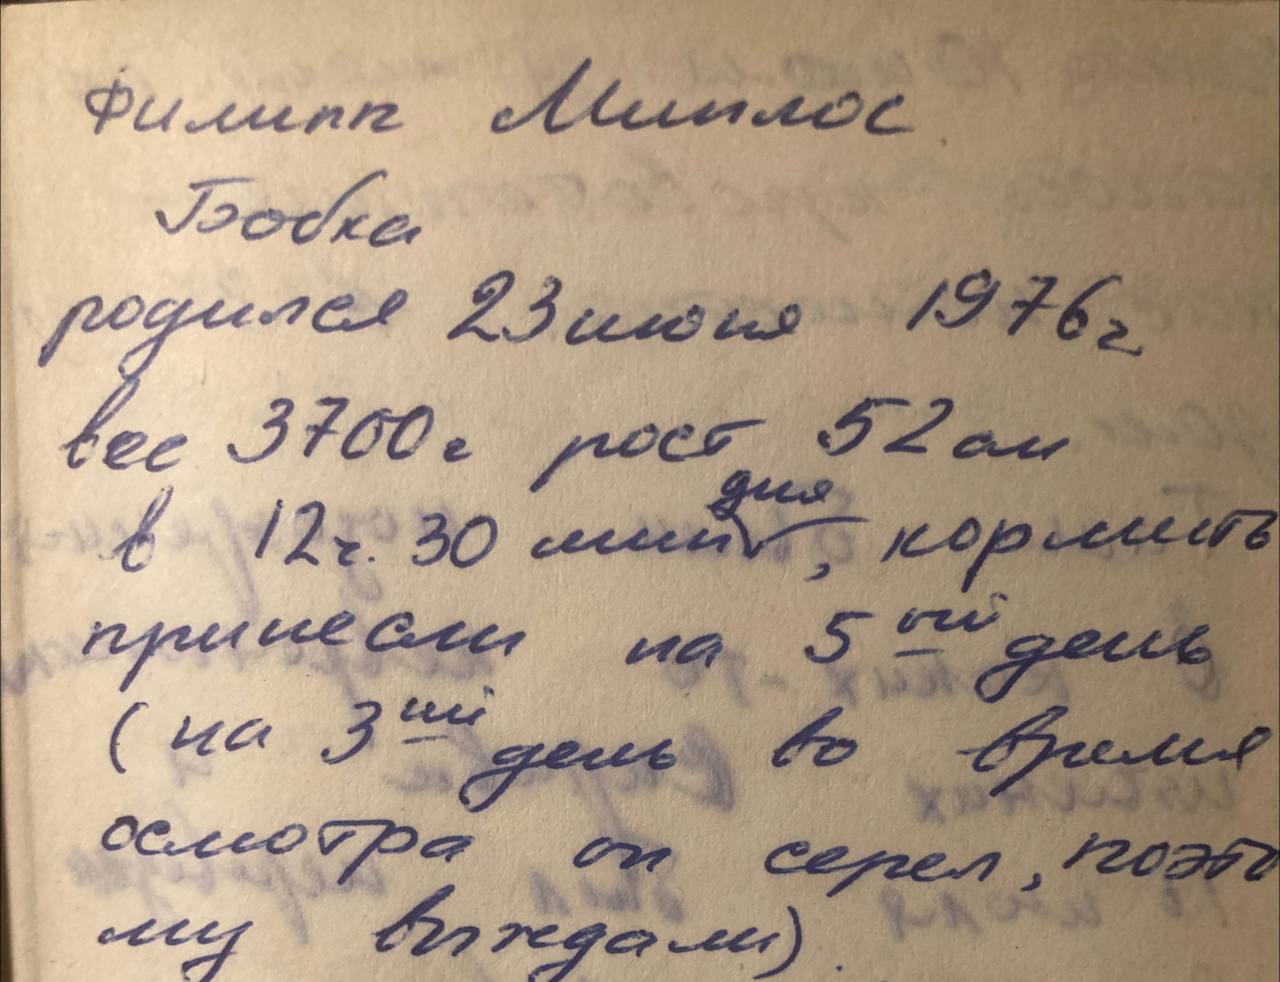 Филипп Миплос
Бобка
родился 23 июня 1976 г
вес 3700 г рост 52 см
дня
в 12 ч. 30 мин, кормить
принесли на 5ый день
(на 3ий день во время
осмотра он серел, поэто
му выждали).